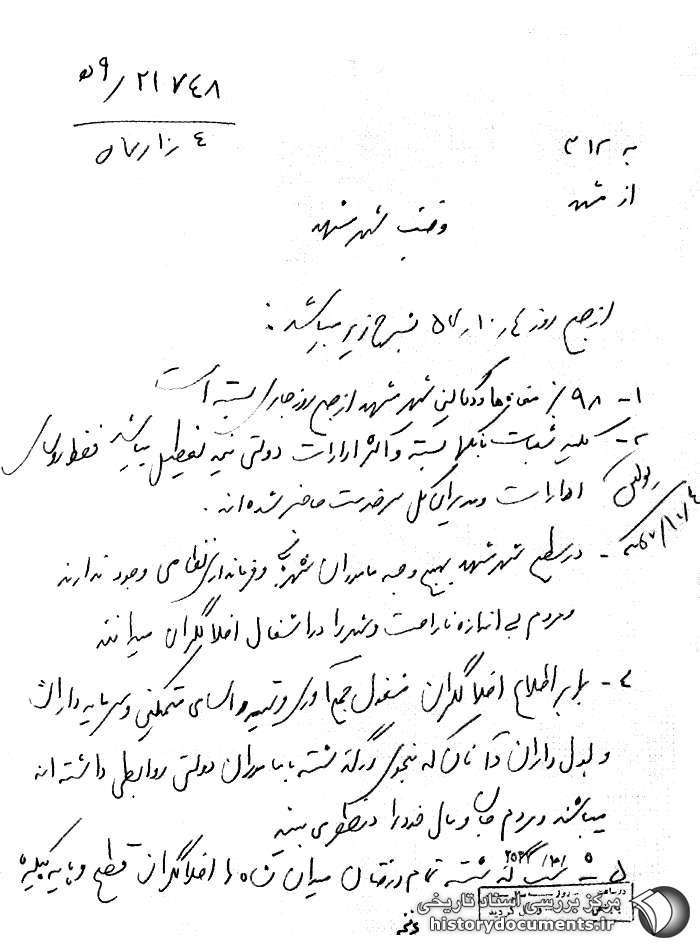 ۵۹/۲۱۷۴۸
۵۷/۱۰/۴
به ۳۱۲
از مشهد
وضعیت شهر مشهد
از صبح روز ۵۷/۱۰/۴ بشرح زیر میباشد :
۱- ۹۸٪ مغازه‌ها و دکاکین شهر مشهد از صبح روز جاری بسته است
۲- کلیه شعبات بانکها بسته و اکثر ادارات دولتی نیمه تعطیل میباشد فقط روسای
ادارات و مدیران کل سر خدمت حاضر شده‌اند .
۳- در سطح شهر مشهد بهیچ وجه مامورین شهربانی و فرمانداری نظامی وجود ندارند
و مردم بی اندازه ناراحت و شهر را در اشغال اخلالگران میدانند
۴- برابر اطلاع اخلالگران مشغول جمع آوری و تهیه اسامی متمکنین و سرمایه داران
و پول داران و آنان که بنحوی در گذشته با مامورین دولتی روابطی داشته اند
میباشند و مردم جان و مال خود را در خطر می بینند
۵- شب گذشته تمام درختان میدان شاه را اخلالگران قطع و پایه کلیه
مرکز بررسی اسناد تاریخی
historydocuments.ir